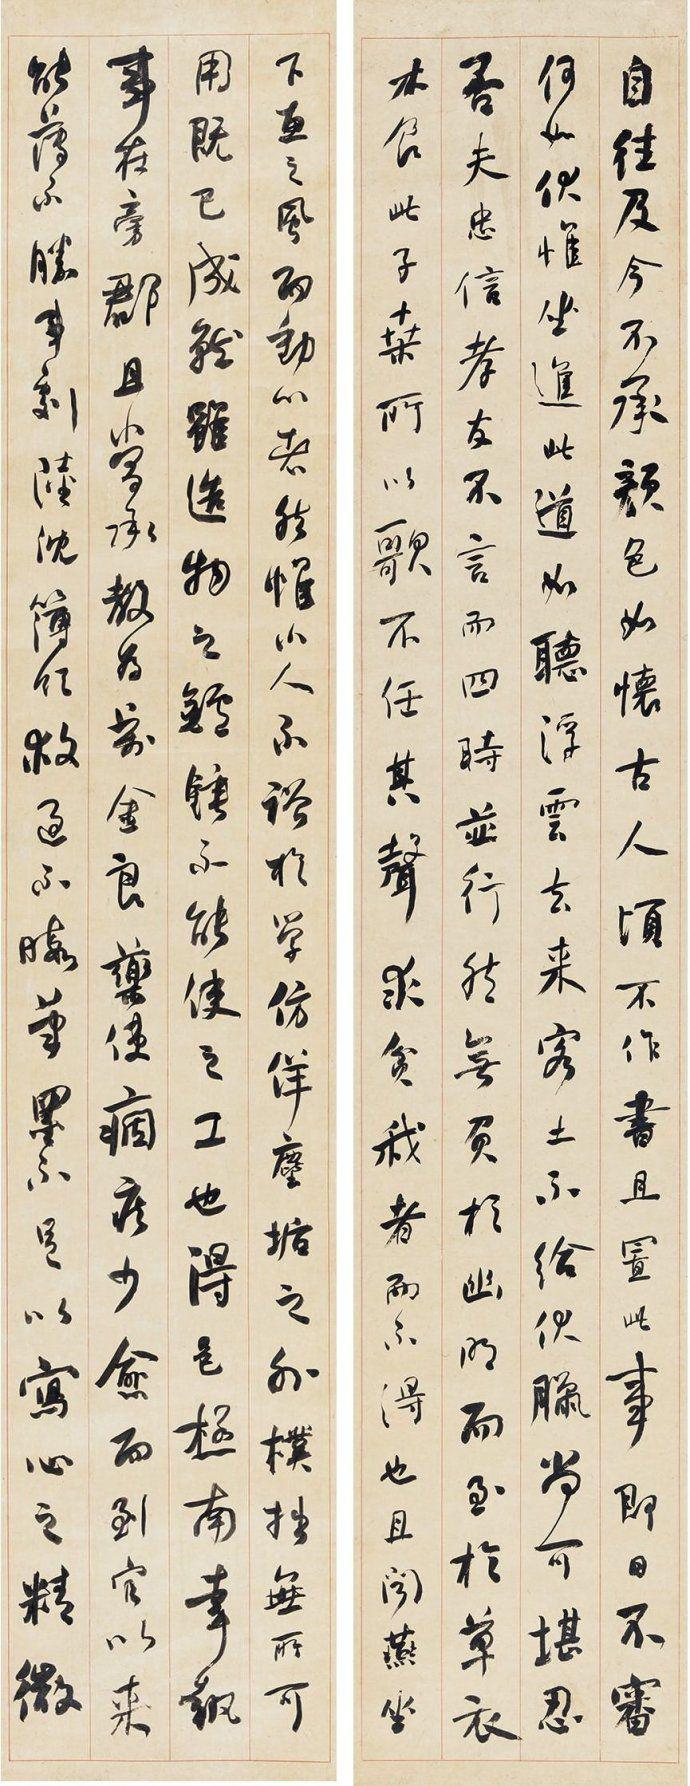 自往及今不承顏色如懷古人頃不作書且置此事即日不審
何如伏惟坐進此道如聽浮雲去來客土不給伏臘尚可堪忍
否夫忠信孝友不言而四時並行然無負於幽明而至於草衣
木食此子桒所以歌不任其聲求貧我者而不得也且聞燕坐
下直之風而動心者然惟小人不裕於學仿佯塵垢之外樸拙無所可
用既已成就雖造物之鑪錘不能使之工也得邑極南幸執
事在旁郡且嘗承教為金良藥使痼疾少愈而到官以來
能薄不勝事劇陸沈簿領救過不暇筆墨不足以寫心之精微